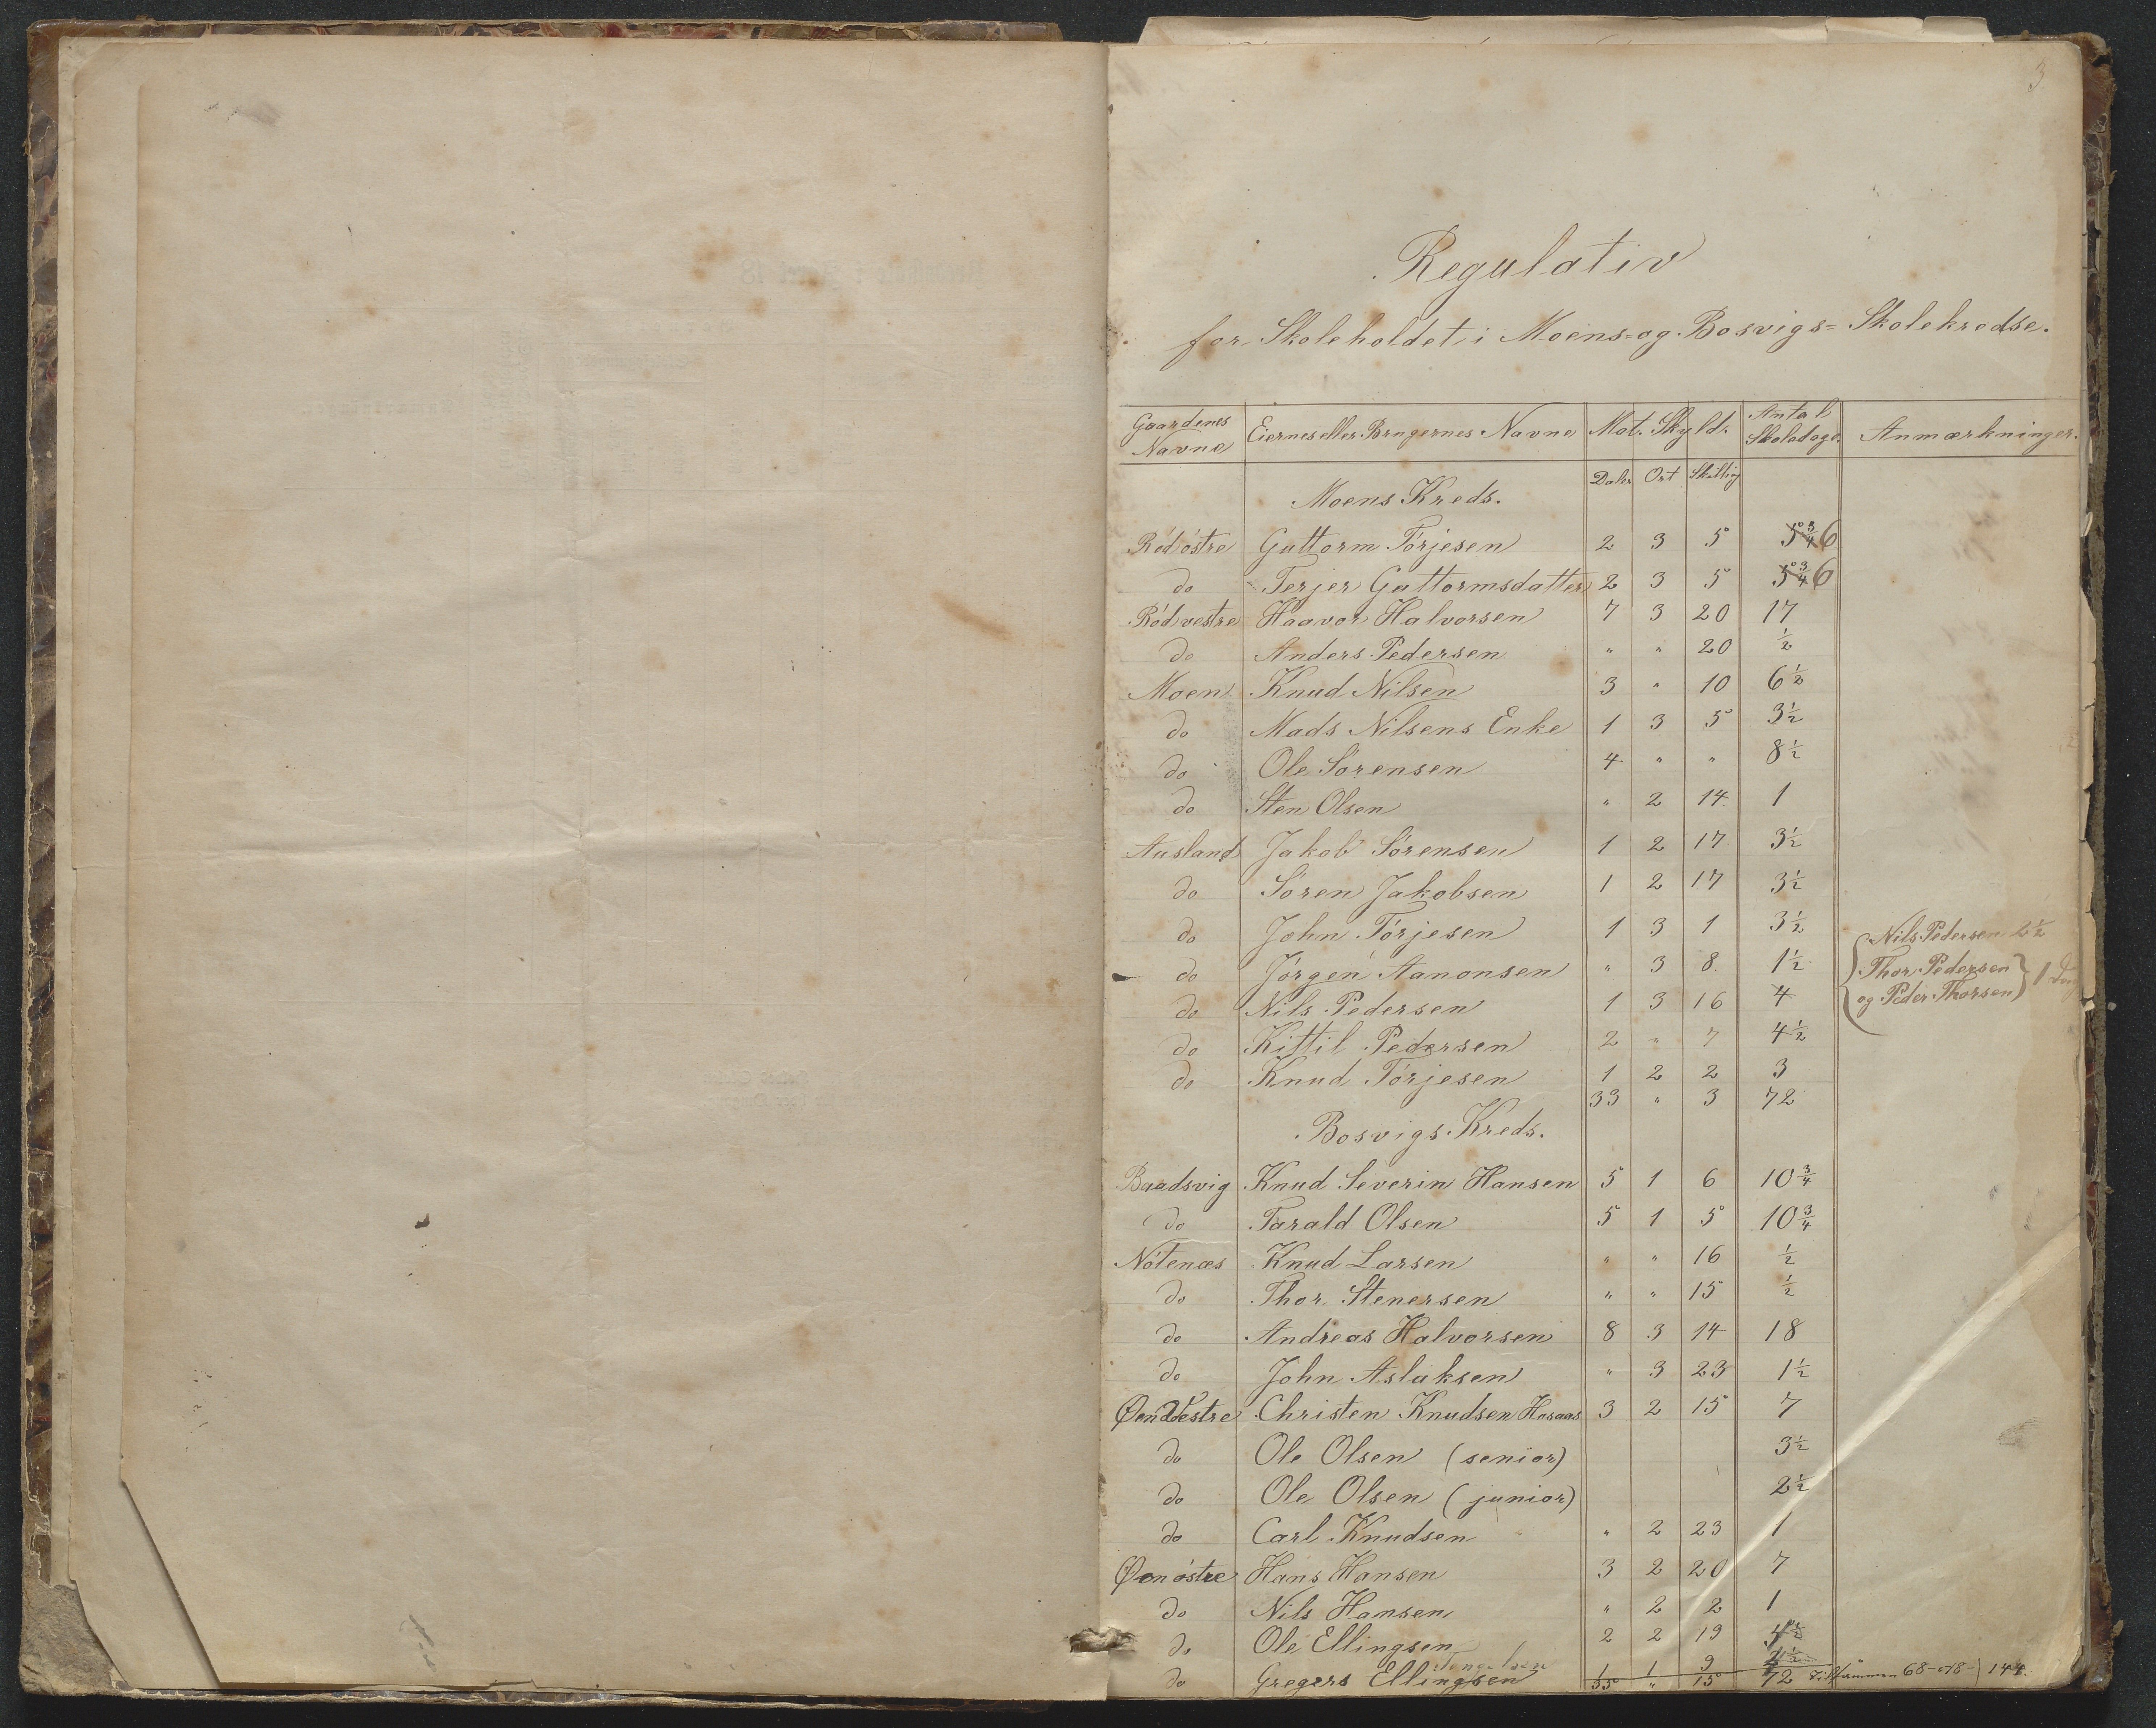 3
Regulativ
for Skoleholdet i Moens- og Bosvigs= Skolekredse.
Gaardenes Navne | Eiernes eller Brugernes Navne | Mat. Skyld. | Antal Skoledage. | Anmærkninger.
Daler | Ort | Skilling
Moens Kreds.
Röd östre | Guttorm Törjesen | 2 | 3 | 5 | 5 3/4 6
do | Terjer Guttormsdatter | 2 | 3 | 5 | 5 3/4 6
Röd vestre | Haavor Halvorsen | 7 | 3 | 20 | 17
do | Anders Pedersen | " | " | 20 | 1/2
Moen | Knud Nilsen | 3 | " | 10 | 6 1/2
do | Mads Nilsens Enke | 1 | 3 | 5 | 3 1/2
do | Ole Sörensen | 4 | " | " | 8 1/2
do | Sten Olsen | " | 2 | 14 | 1
Ausland | Jakob Sörensen | 1 | 2 | 17 | 3 1/2
do | Sören Jakobsen | 1 | 2 | 17 | 3 1/2
do | John Törjesen | 1 | 3 | 1 | 3 1/2 | Nils Pedersen 2 1/2
do | Jörgen Aanonsen | " | 3 | 8 | 1 1/2 | Thor Pedersen
do | Nils Pedersen | 1 | 3 | 16 | 4 | og Peder Thorsen } 1
do | Kittil Pedersen | 2 | " | 7 | 4 1/2
do | Knud Törjesen | 1 | 2 | 2 | 3
33 | " | 3 | 72
Bosvigs Kreds.
Baadsvig | Knud Severin Hansen | 5 | 1 | 6 | 10 3/4
do | Tarald Olsen | 5 | 1 | 5 | 10 3/4
Nötenæs | Knud Larsen | " | " | 16 | 1/2
do | Thor Stenersen | " | " | 15 | 1/2
do | Andreas Halvorsen | 8 | 3 | 14 | 18
do | John Aslaksen | " | 3 | 23 | 1 1/2
Øen Vestre | Christen Knudsen Haaas | 3 | 2 | 15 | 7
do | Ole Olsen (senior) | 3 1/2
do | Ole Olsen (junior) | 2 1/2
do | Carl Knudsen | " | 2 | 23 | 1
Øen östre | Hans Hansen | 3 | 2 | 20 | 7
do | Nils Hansen | " | 2 | 2 | 1
do | Ole Ellingsen | 2 | 2 | 19
do | Gregers Ellingsen | 1 | 1 | 9
35 | " | 15 | 72 Tilsammen 68-"-18- | 144.